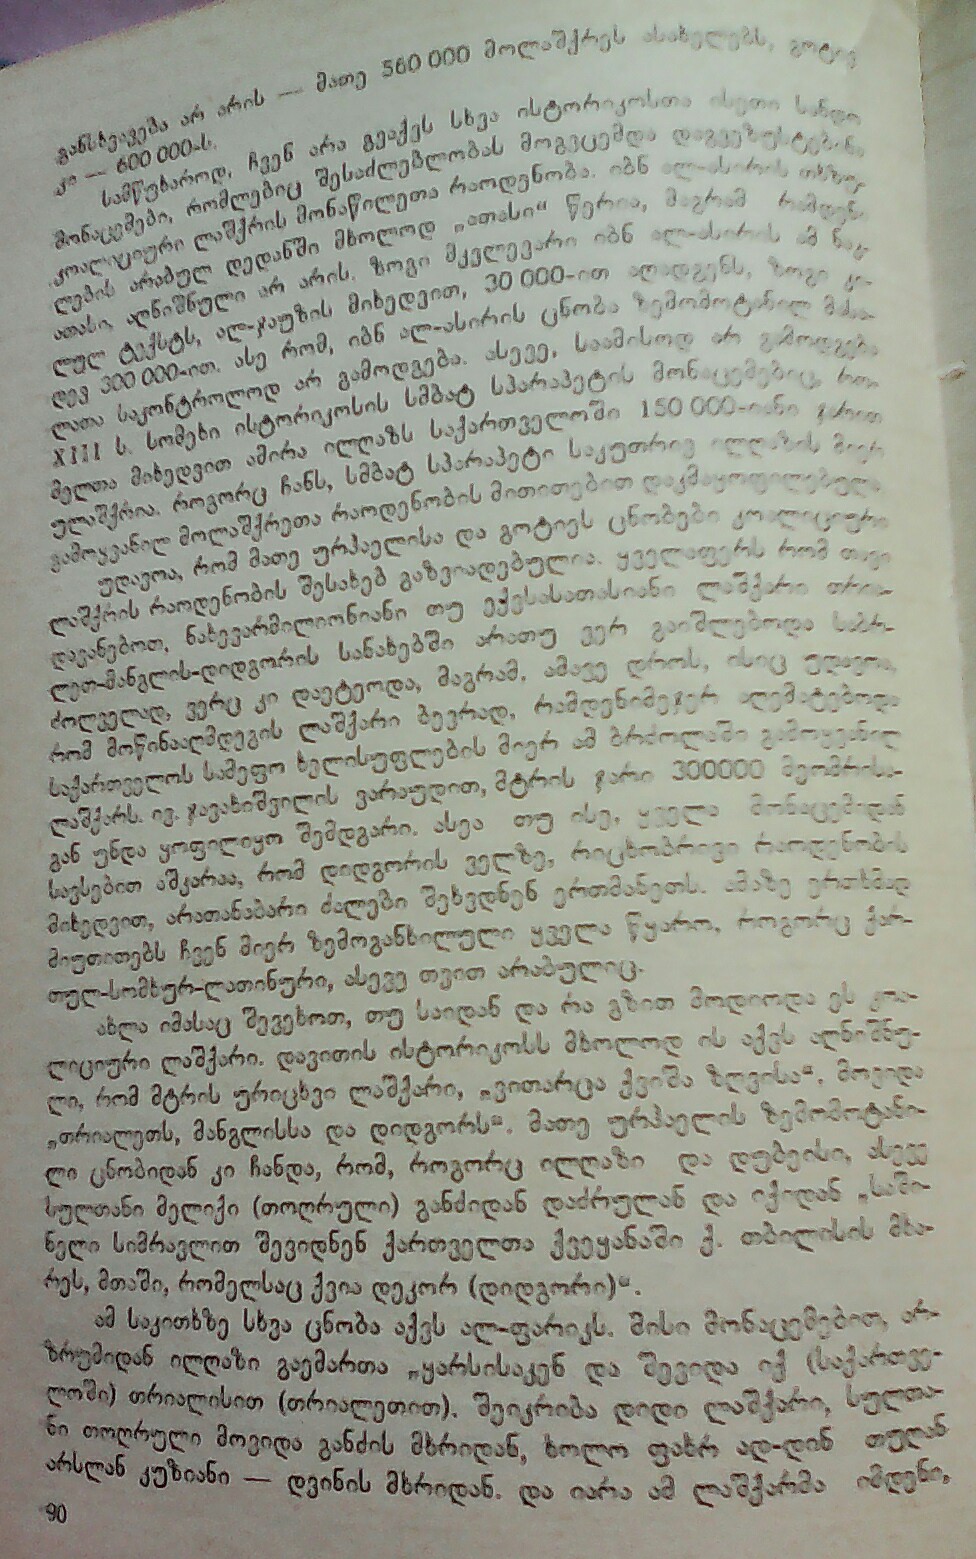 განსხვავება არ არის — მათე 560 000 მოლაშქრეს ასახელებს, გოტიე
კი — 600 000-ს.
სამწუხაროდ, ჩვენ არა გვაქვს სხვა ისტორიკოსთა ისეთი სანდო
მონაცემები, რომლებიც შესაძლებლობას მოგვცემდა დაგვეზუსტებინა
კოალიციური ლაშქრის მონაწილეთა რაოდენობა. იბნ ალ-ასირის თხზუ-
ლების არაბულ დედანში მხოლოდ „ათასი“ წერია, მაგრამ რამდენი
ათასი, აღნიშნული არ არის. ზოგი მკვლევარი იბნ ალ-ასირის ამ ნაკ-
ლულ ტექსტს, ალ-ჯაუზის მიხედვით, 30 000-ით აღადგენს, ზოგი კი-
დევ 300 000-ით. ასე რომ, იბნ ალ-ასირის ცნობა ზემომოტანილ მასა-
ლათა საკონტროლოდ არ გამოდგება. ასევე, საამისოდ არ გამოდგება
XIII ს. სომეხი ისტორიკოსის სმბატ სპარაპეტის მონაცემებიც, რო-
მელთა მიხედვით ამირა ილღაზს საქართველოში 150 000-იანი ჯარით
ულაშქრია. როგორც ჩანს, სმბატ სპარაპეტი საკუთრივ ილღაზის მიერ
გამოყვანილ მოლაშქრეთა რაოდენობის მითითებით დაკმაყოფილებულა.
უდავოა, რომ მათე ურჰაელისა და გოტიეს ცნობები კოალიციური
ლაშქრის რაოდენობის შესახებ გაზვიადებულია. ყველაფერს რომ თავი
დავანებოთ, ნახევარმილიონიანი თუ ექვსასათასიანი ლაშქარი თრია-
ლეთ-მანგლის-დიდგორის სანახებში არათუ ვერ გაიშლებოდა საბრ-
ძოლველად, ვერც კი დაეტეოდა, მაგრამ, ამავე დროს, ისიც უდავოა,
რომ მოწინააღმდეგის ლაშქარი ბევრად, რამდენიმეჯერ აღემატებოდა
საქართველოს სამეფო ხელისუფლების მიერ ამ ბრძოლაში გამოყვანილ
ლაშქარს. ივ. ჯავახიშვილის ვარაუდით, მტრის ჯარი 300000 მეომრისა-
გან უნდა ყოფილიყო შემდგარი. ასეა თუ ისე, ყველა მონაცემიდან
სავსებით აშკარაა, რომ დიდგორის ველზე, რიცხობრივი რაოდენობის
მიხედვით, არათანაბარი ძალები შეხვდნენ ერთმანეთს. ამაზე ერთხმად
მიუთითებს ჩვენ მიერ ზემოგანხილული ყველა წყარო, როგორც ქარ-
თულ-სომხურ-ლათინური, ასევე თვით არაბულიც.
ახლა იმასაც შევეხოთ, თუ საიდან და რა გზით მოდიოდა ეს კოა-
ლიციური ლაშქარი. დავითის ისტორიკოსს მხოლოდ ის აქვს აღნიშნუ-
ლი, რომ მტრის ურიცხვი ლაშქარი, „ვითარცა ქვიშა ზღვისა“, მოვიდა
„თრიალეთს, მანგლისსა და დიდგორს“. მათე ურჰაელის ზემომოტანი-
ლი ცნობიდან კი ჩანდა, რომ, როგორც ილღაზი და დუბეისი, ასევე
სულთანი მელიქი (თოღრული) განძიდან დაძრულან და იქიდან „საში-
ნელი სიმრავლით შევიდნენ ქართველთა ქვეყანაში ქ. თბილისის მხა-
რეს, მთაში, რომელსაც ქვია დეკორ (დიდგორი)“.
ამ საკითხზე სხვა ცნობა აქვს ალ-ფარიკს. მისი მონაცემებით, არ-
ზრუმიდან ილღაზი გაემართა „ყარსისაკენ და შევიდა იქ (საქართვე-
ლოში) თრიალისით (თრიალეთით). შეიკრიბა დიდი ლაშქარი, სულთა-
ნი თოღრული მოვიდა განძის მხრიდან, ხოლო ფახრ ად-დინ თუღან
არსლან კუზიანი — დვინის მხრიდან. და იარა ამ ლაშქარმა იმდენი,
90